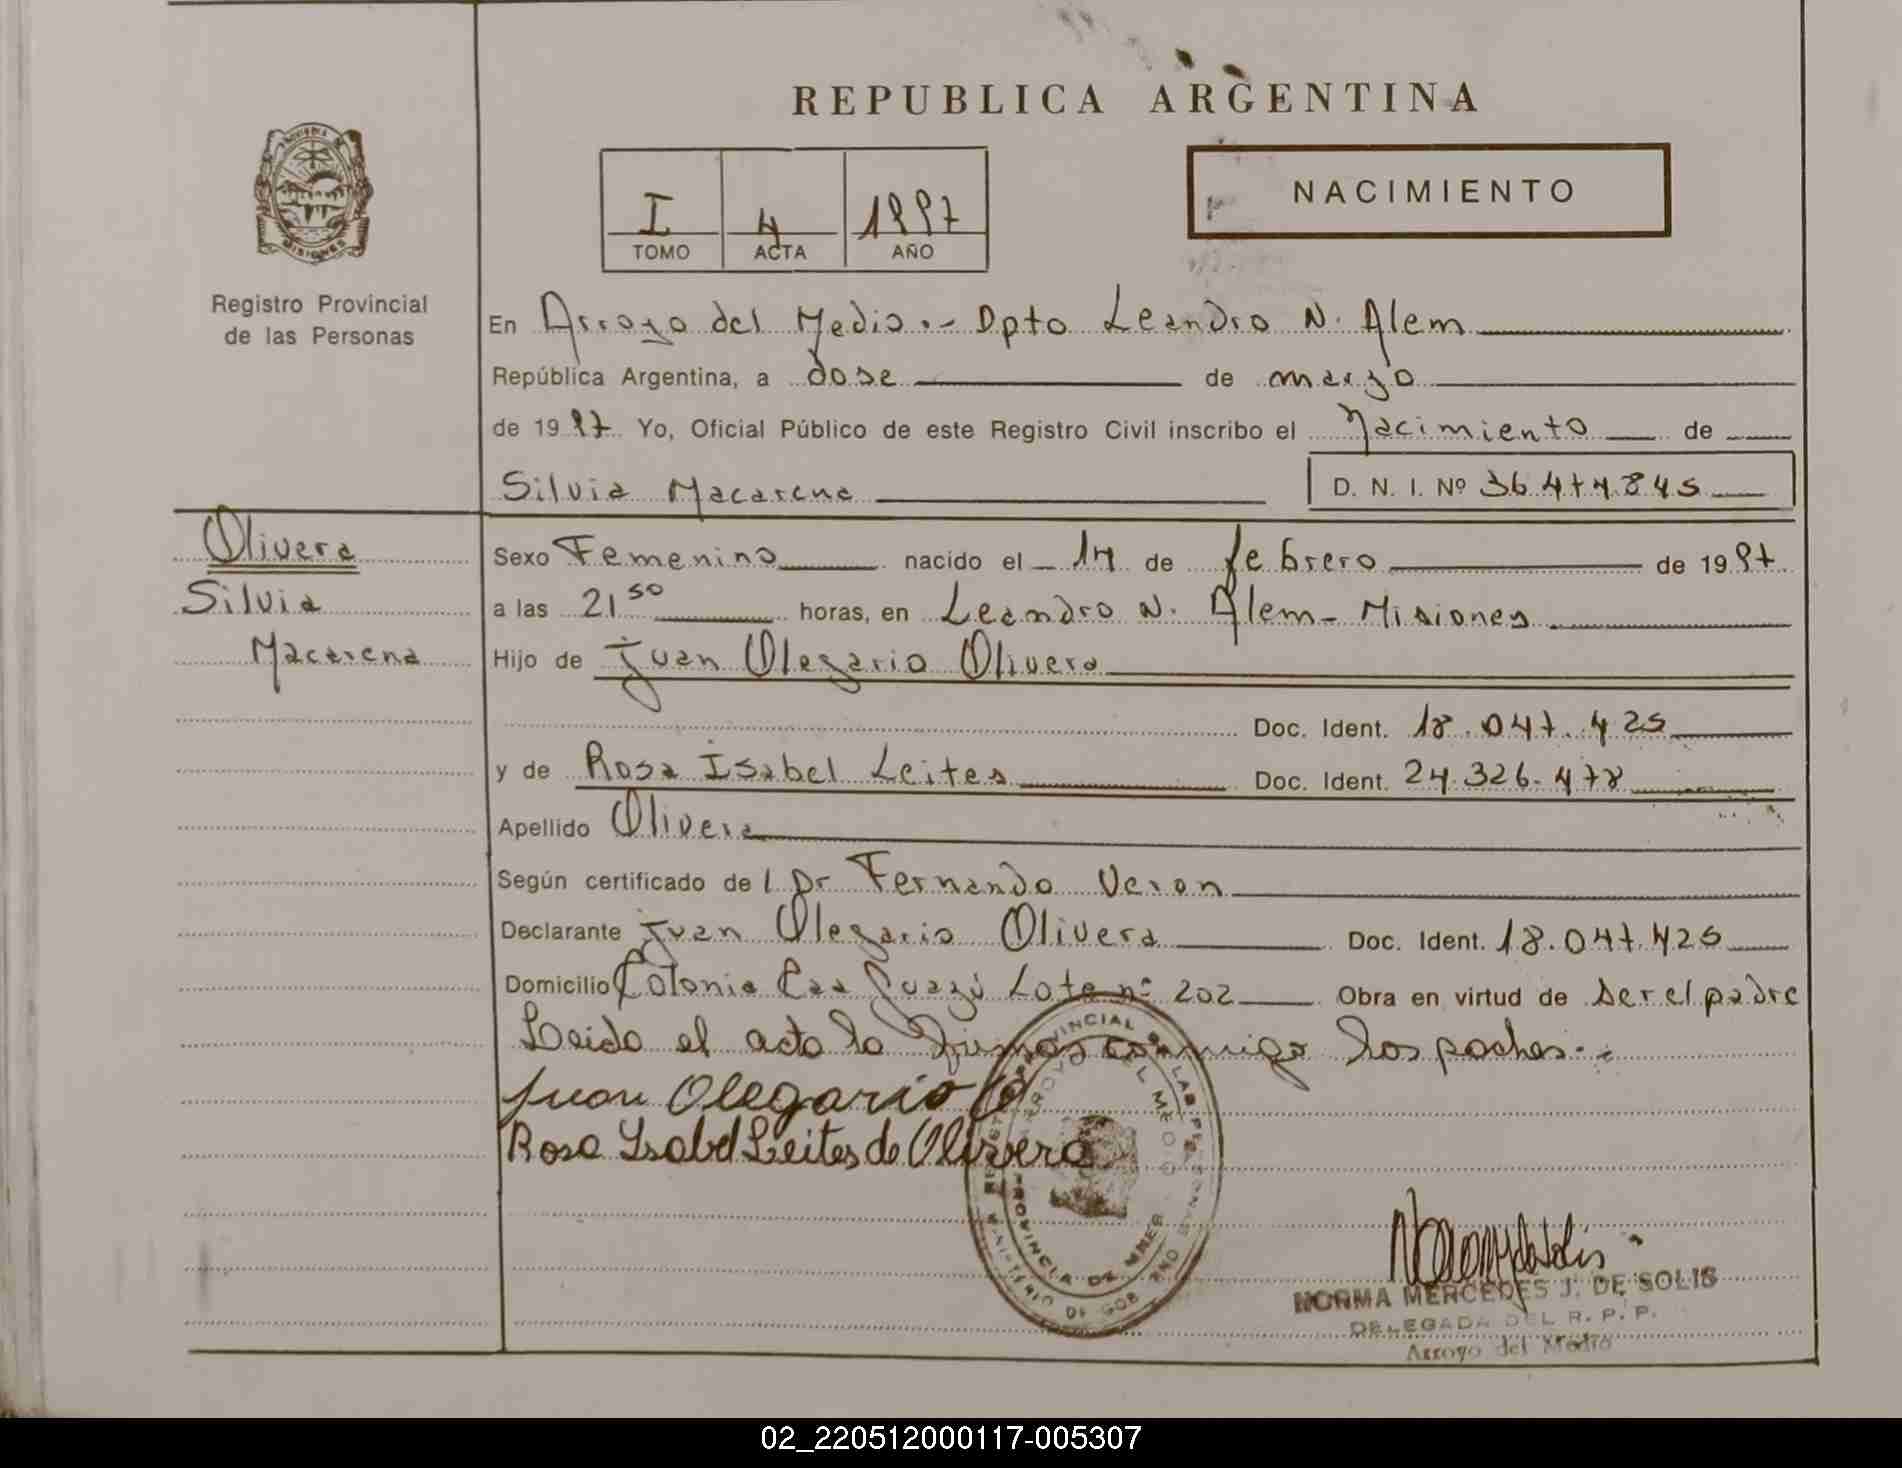 REPUBLICA ARGENTINA
NACIMIENTO
I 4 1997
TOMO ACTA AÑO
PROVINCIA DE MISIONES
Registro Provincial
de las Personas
En Arroyo del Medio.- Dpto Leandro N. Alem
República Argentina, a dose de marzo
de 1997 Yo, Oficial Público de este Registro Civil inscribo el Nacimiento de
Silvia Macarena D. N. I. Nº 36.474.845
Olivera
Silvia
Macarena
Sexo Femenino nacido el 14 de febrero de 1997
a las 21 50 horas, en Leandro N. Alem - Misiones
Hijo de Juan Olegario Olivera
Doc. Ident. 18.047.425
y de Rosa Isabel Leites Doc. Ident. 24.326.478
Apellido Olivera
Según certificado del Dr Fernando Veron
Declarante Juan Olegario Olivera Doc. Ident. 18.047.425
Domicilio Colonia Caa Guazú Lote nº 202 Obra en virtud de ser el padre
Leido el acta la firman conmigo los padres.-
Juan Olegario O
Rosa Isabel Leites de Olivera
REGISTRO PROVINCIAL DE LAS PERSONAS
ARROYO DEL MEDIO
PROVINCIA DE MNES
MINISTERIO DE GOB
NORMA MERCEDES J. DE SOLIS
DELEGADA DEL R. P. P.
Arroyo del Medio
02_220512000117-005307